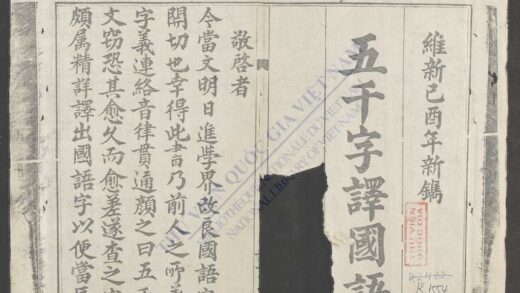 維新己酉年新鐫
五千字譯國語
敬啓者
今當文明日進學界改良國語
関切也幸得此書乃前人之所
字義連絡音律貫通顏之曰五
文窃恐其愈久而愈差遂查之
頗属精詳譯出國語字以便當
THƯ VIỆN QUỐC GIA VIỆT NAM
BIBLIOTHÈQUE NATIONALE DU VIETNAM
NATIONAL LIBRARY OF VIETNAM
THƯ VIỆN
QUỐC GIA
R 1554